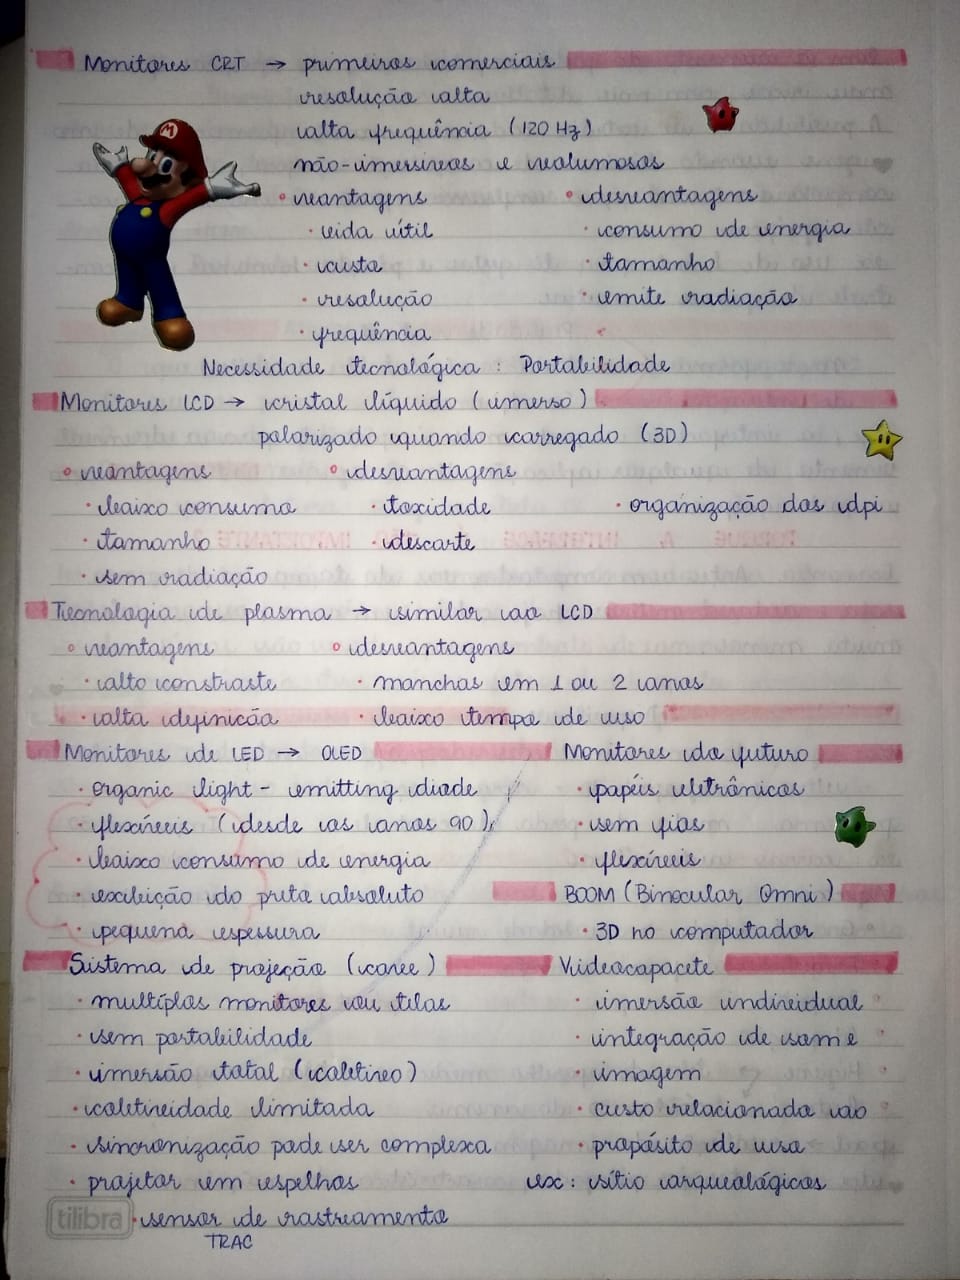 Monitores CRT → primeiros comerciais
resolução alta
alta frequência (120 Hz)
não-imersivos e volumosos
• vantagens • desvantagens
· vida útil · consumo de energia
· custo · tamanho
· resolução · emite radiação
· frequência
Necessidade tecnológica : Portabilidade
Monitores LCD → cristal líquido (imerso)
polarizado quando carregado (3D)
• vantagens • desvantagens
· baixo consumo · toxidade · organização dos dpi
· tamanho · descarte
· sem radiação
Tecnologia de plasma → similar ao LCD
• vantagens • desvantagens
· alto constraste · manchas em 1 ou 2 anos
· alta definicão · baixo tempo de uso
Monitores de LED → OLED
· organic light - emitting diode
· flexíveis (desde os anos 90)
· baixo consumo de energia
· exibição do preto absoluto
· pequena espessura
Monitores do futuro
· papéis eletrônicos
· sem fios
· flexíveis
BOOM (Binocular Omni)
· 3D no computador
Sistema de projeção (cave)
· multíplos monitores ou telas
· sem portabilidade
· imersão total (coletivo)
· coletividade limitada
· sincronização pode ser complexa
· projetar em espelhos
· sensor de rastreamento
TRAC
Videocapacete
· imersão individual
· integração de som e
· imagem
· custo relacionado ao
· propósito de uso
ex : sítio arqueológicos
tilibra
M